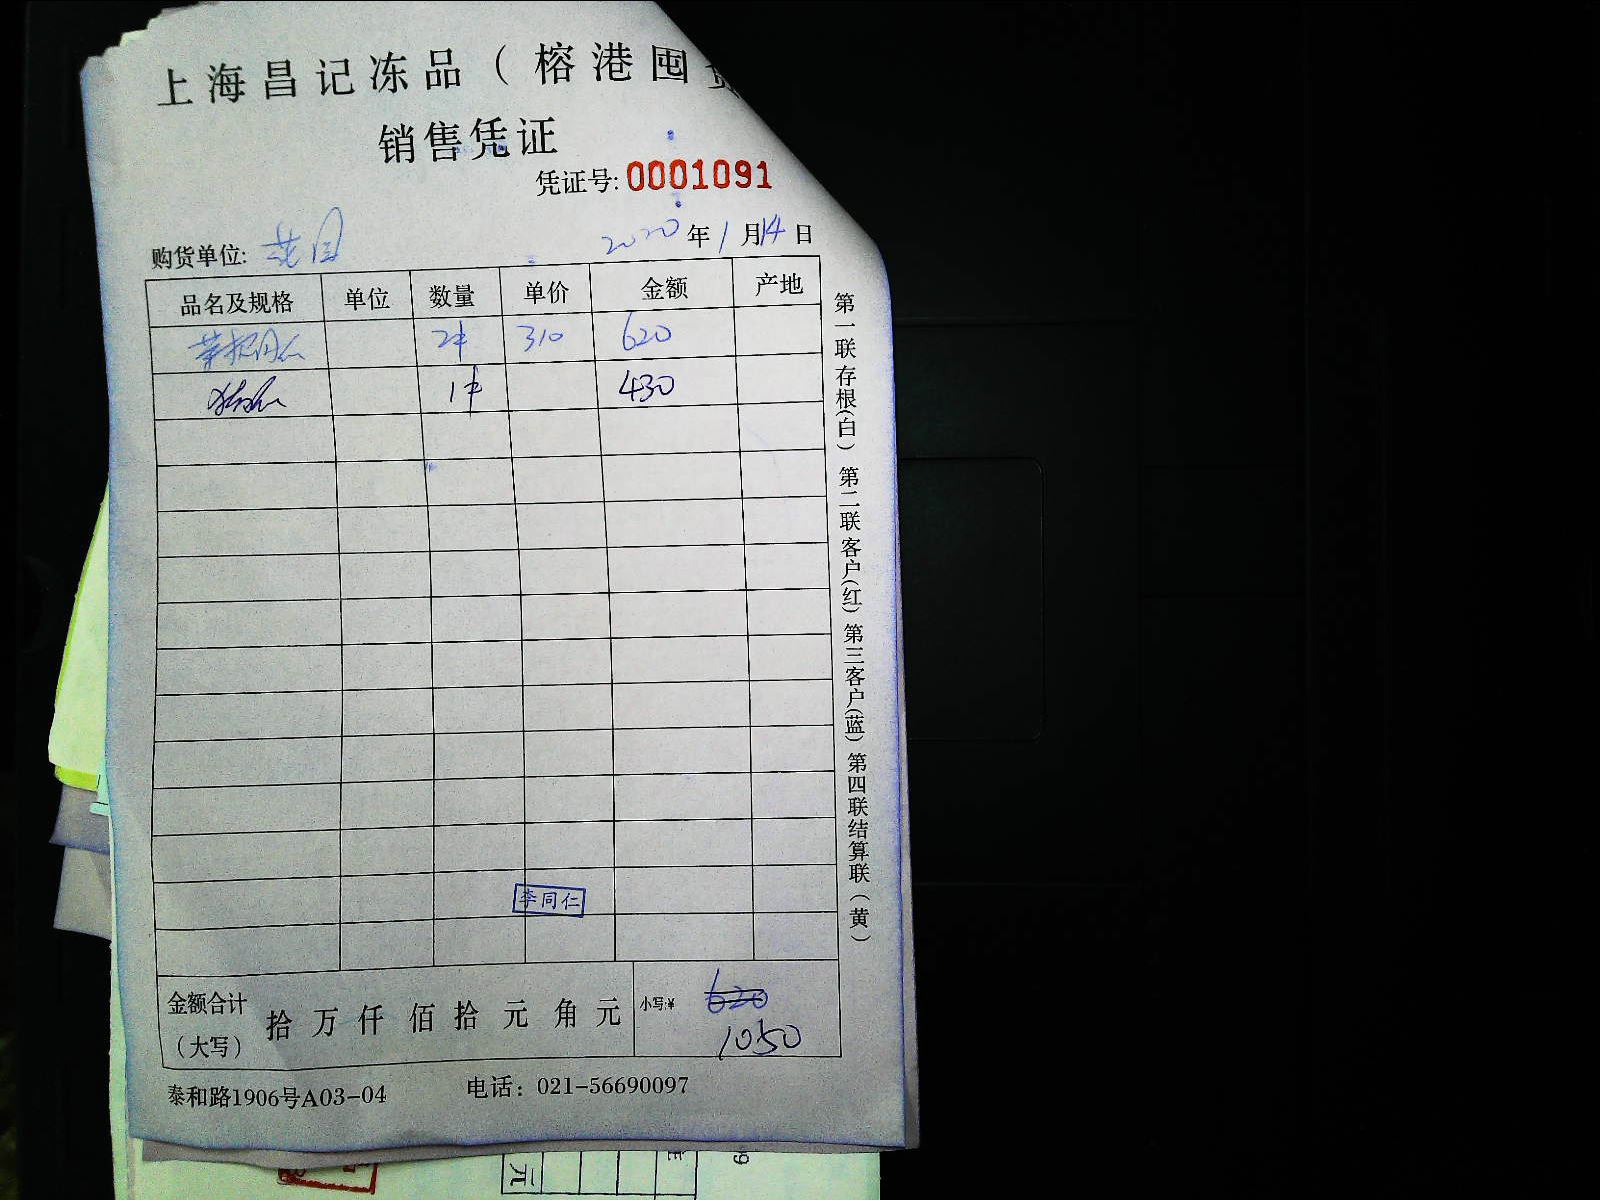 上海昌记冻品（榕港囤
销售凭证
凭证号: 0001091
购货单位: 花园 2020年1月14日
品名及规格 单位 数量 单价 金额 产地
2件 310 620
1件 430
李同仁
金额合计（大写） 拾 万 仟 佰 拾 元 角 元 小写:¥ 620
1050
泰和路1906号A03-04 电话：021-56690097
第一联存根(白) 第二联客户(红) 第三客户(蓝) 第四联结算联(黄)